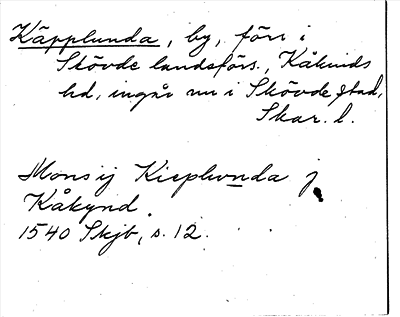 Käpplunda, by, förr i
Skövde landsförs., Kåkinds
hd, ingår nu i Skövde stad,
Skar. l.
Mons ij Kieplunda j
Kåkynd.
1540 Skjb, s. 12.